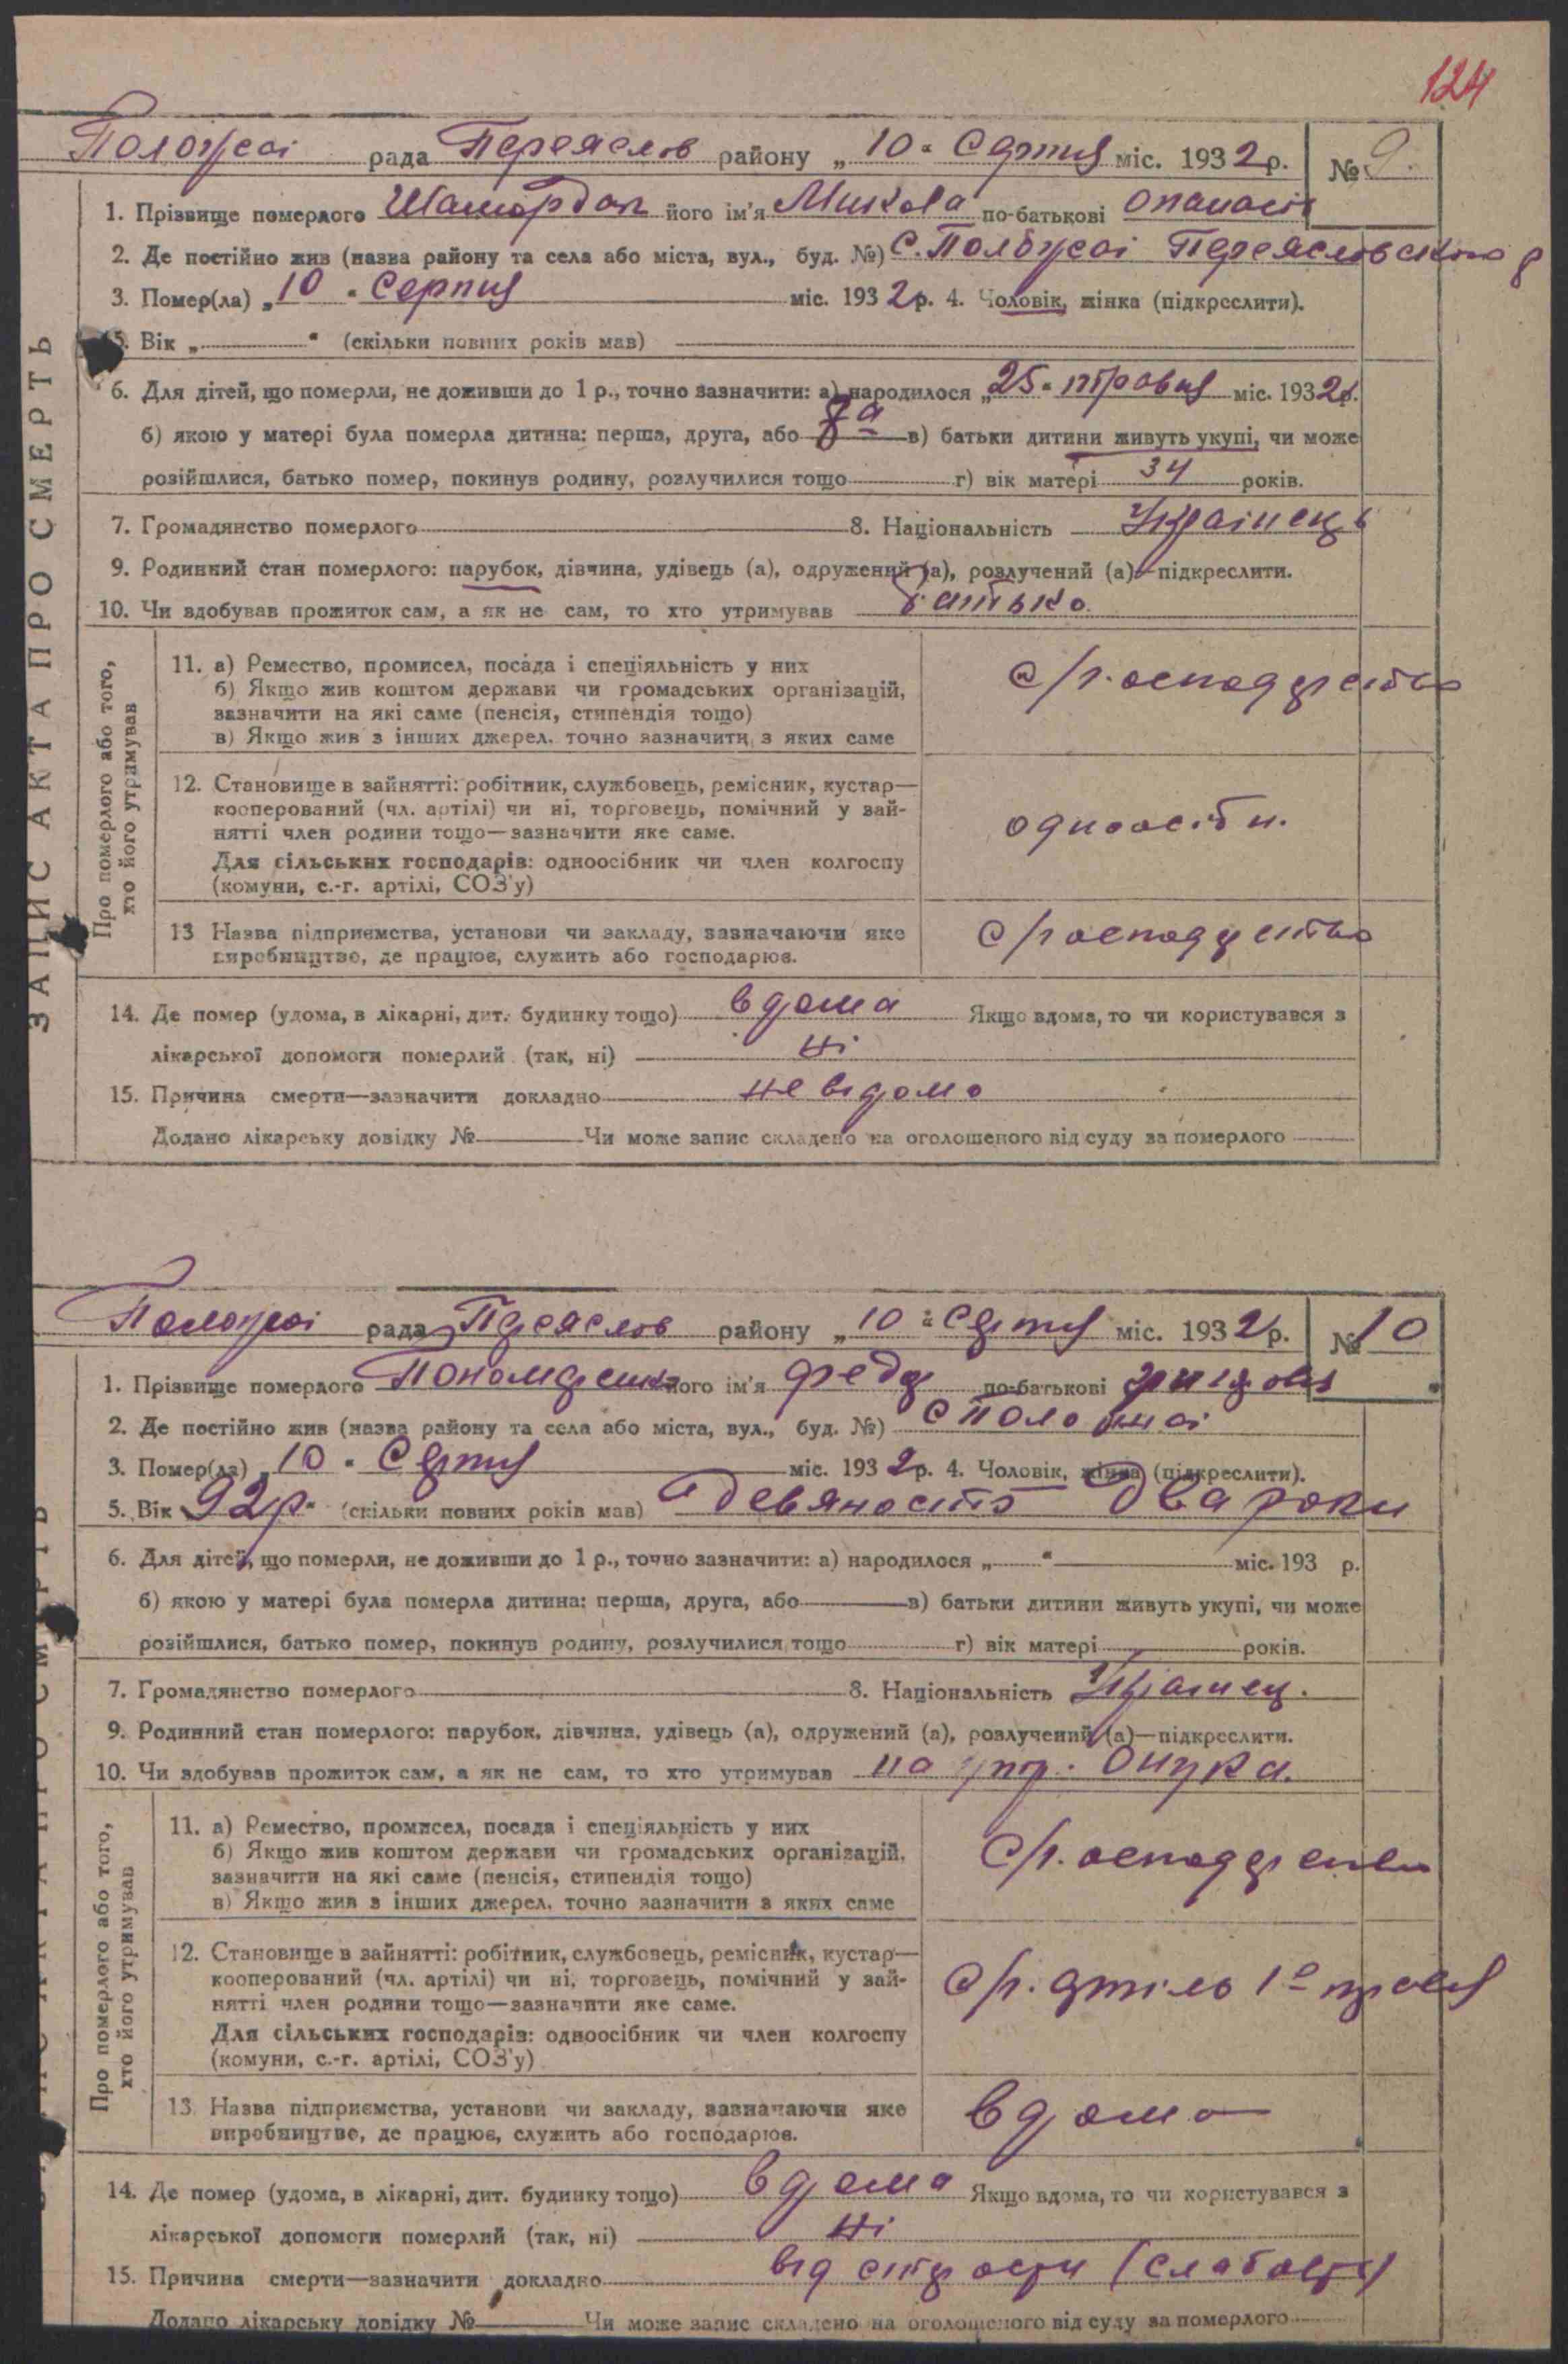 124
рада Переяслов району „10“ Серпня міс. 1932 р. № 9.
1. Прізвище померлого Шамордак його ім'я Микола по-батькові Опанасів
2. Де постійно жив (назва району та села або міста, вул., буд. №) С. Переясловського р
3. Помер(ла) „10“ Серпня міс. 1932 р. 4. Чоловік, жінка (підкреслити).
5. Вік „ “ (скільки повних років мав)
6. Для дітей, що померли, не доживши до 1 р., точно зазначити: а) народилося „25“ травня міс. 1932 р.
б) якою у матері була померла дитина: перша, друга, або в) батьки дитини живуть укупі, чи може
розійшлися, батько помер, покинув родину, розлучилися тощо г) вік матері 34 років.
7. Громадянство померлого 8. Національність Українець
9. Родинний стан померлого: парубок, дівчина, удівець (а), одружений (а), розлучений (а)—підкреслити.
10. Чи здобував прожиток сам, а як не сам, то хто утримував батько.
ЗАПИС АКТА ПРО СМЕРТЬ
Про померлого або того, хто його утримував
11. а) Ремество, промисел, посада і спеціяльність у них
б) Якщо жив коштом держави чи громадських організацій,
зазначити на які саме (пенсія, стипендія тощо)
в) Якщо жив з інших джерел, точно зазначити з яких саме
с/господарство
12. Становище в зайнятті: робітник, службовець, ремісник, кустар—
кооперований (чл. артілі) чи ні, торговець, помічний у зай-
нятті член родини тощо—зазначити яке саме.
Для сільських господарів: одноосібник чи член колгоспу
(комуни, с.-г. артілі, СОЗ'у)
одноосібн.
13 Назва підприємства, установи чи закладу, зазначаючи яке
виробництво, де працює, служить або господарює.
с/господарство
14. Де помер (удома, в лікарні, дит. будинку тощо) вдома Якщо вдома, то чи користувався з
лікарської допомоги померлий (так, ні) Ні
15. Причина смерти—зазначити докладно Не відомо
Додано лікарську довідку № Чи може запис складено на оголошеного від суду за померлого
рада Переяслов району „10“ Серпня міс. 1932 р. № 10
1. Прізвище померлого Пономаренко його ім'я Федір по-батькові Григоров
2. Де постійно жив (назва району та села або міста, вул., буд. №) с
3. Помер(ла) „10“ Серпня міс. 1932 р. 4. Чоловік, жінка (підкреслити).
5. Вік 92 р“ (скільки повних років мав) Девяносто два роки
6. Для дітей, що померли, не доживши до 1 р., точно зазначити: а) народилося „ “ міс. 193 р.
б) якою у матері була померла дитина: перша, друга, або в) батьки дитини живуть укупі, чи може
розійшлися, батько помер, покинув родину, розлучилися тощо г) вік матері років.
7. Громадянство померлого 8. Національність Українец.
9. Родинний стан померлого: парубок, дівчина, удівець (а), одружений (а), розлучений (а)—підкреслити.
10. Чи здобував прожиток сам, а як не сам, то хто утримував на утр. Онука.
Про померлого або того, хто його утримував
11. а) Ремество, промисел, посада і спеціяльність у них
б) Якщо жив коштом держави чи громадських організацій,
зазначити на які саме (пенсія, стипендія тощо)
в) Якщо жив з інших джерел, точно зазначити з яких саме
с/господарство
12. Становище в зайнятті: робітник, службовець, ремісник, кустар—
кооперований (чл. артілі) чи ні, торговець, помічний у зай-
нятті член родини тощо—зазначити яке саме.
Для сільських господарів: одноосібник чи член колгоспу
(комуни, с.-г. артілі, СОЗ'у)
с/г. артіль 1е травня
13. Назва підприємства, установи чи закладу, зазначаючи яке
виробництво, де працює, служить або господарює.
вдома
14. Де помер (удома, в лікарні, дит. будинку тощо) вдома Якщо вдома, то чи користувався з
лікарської допомоги померлий (так, ні) Ні
15. Причина смерти—зазначити докладно від старости (слабости)
Додано лікарську довідку № Чи може запис складено на оголошеного від суду за померлого